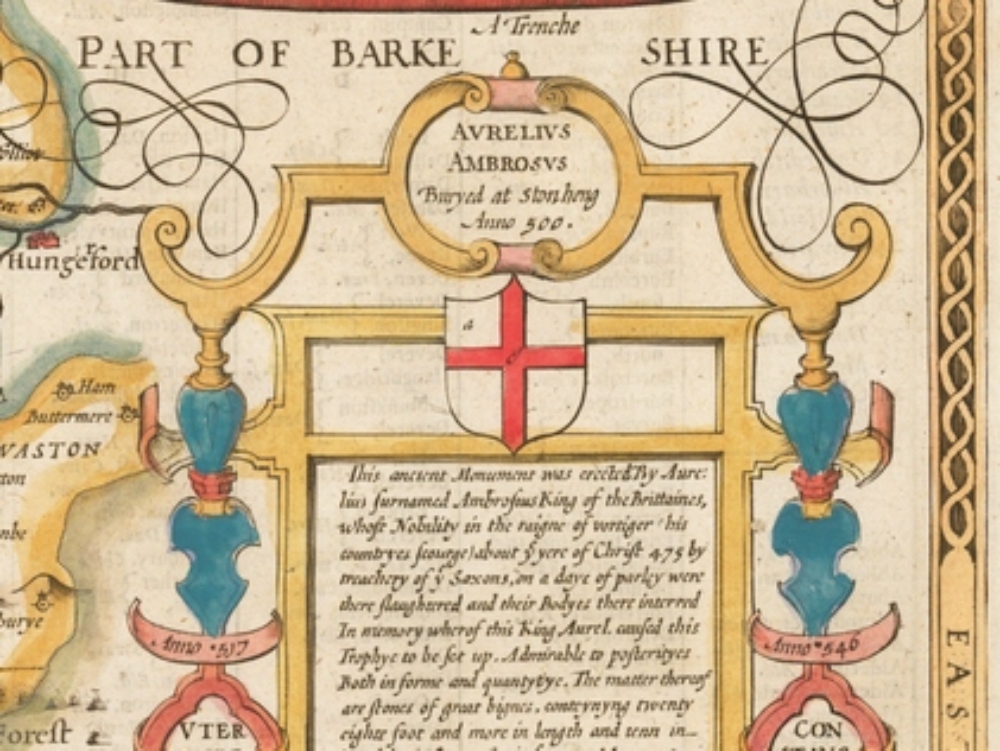 A Trenche
PART OF BARKE SHIRE
AVRELIVS
AMBROSVS
Buryed at Stonheng
Anno 500.
Hungerford
Ham
Buttermere
WASTON
a
This ancient Monument was erected by Aure:
lius surnamed Ambrosius King of the Brittaines,
whose Nobility in the raigne of vortiger (his
countryes scourge) about yͤ yere of Christ 475 by
treachery of yͤ Saxons, on a daye of parley were
there slaughtered and their Bodyes there interred
In memory wherof this King Aurel. caused this
Trophye to be set up. Admirable to posterityes
Both in forme and quantytye. The matter therof
are stones of great bignes, conteynyng twenty
eighte foot and more in length and tenn in
Anno 517
Anno 546
VTER
CON
Forest
EAS